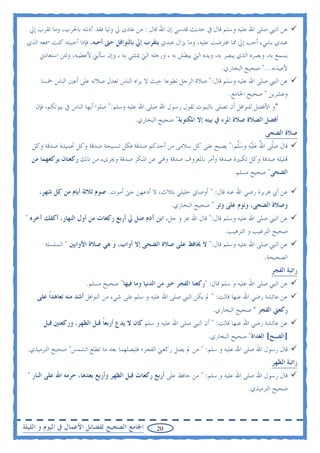 عن النبي صلى الله عليه وسلم قال في حديث قدسي إن الله قال : من عادى لي وليا فقد آذنته بالحرب، وما تقرب إلي
عبدي بشيء أحب إلي مما افترضت عليه، وما يزال عبدي يتقرب إلي بالنوافل حتى أحبه، فإذا أحببته كنت سمعه الذي
يسمع به، وبصره الذي يبصر به، ويده التي يبطش بها ، ورجله التي يمشي بها ، وإن سألني لأعطينه، ولئن استعاذني
لأعيذنه..." صحيح البخاري.
عن النبي صلى الله عليه وسلم قال:" صلاة الرجل تطوعا حيث لا يراه الناس تعدل صلاته على أعين الناس خمسا
وعشرين " صحيح الجامع.
*و الأفضل للنوافل أن تصلى بالبيوت لقول رسول الله صلى الله عليه وسلم:" صلوا أيها الناس في بيوتكم، فإن
أفضل الصلاة صلاة المرء في بيته إلا المكتوبة" صحيح البخاري.
صلاة الضحى
قال صلى الله عليه وسلم:" يصبح على كل سلامى من أحدكم صدقة فكل تسبيحة صدقة وكل تحميدة صدقة وكل
تهليلة صدقة وكل تكبيرة صدقة وأمر بالمعروف صدقة ونهي عن المنكر صدقة ويجزئ، من ذلك ركعتان يركعهما من
الضحى" صحيح مسلم
عن أبي هريرة رضي الله عنه قال: " أوصاني خليلي بثلاث، لا أدعهن حتى أموت. صوم ثلاثة أيام من كل شهر،
وصلاة الضحى، ونوم على وتر " صحيح البخاري.
عن النبي صلى الله عليه وسلم قال:" قال الله عز و جل، ابن آدم صل لي أربع ركعات من أول النهار، أكفك آخره "
صحيح الترغيب و الترهيب.
عن النبي صلى الله عليه وسلم قال: " لا يحافظ على صلاة الضحى إلا أواب، و هي صلاة الأوابين " السلسلة
الصحيحة.
راتبة الفجر
عن النبي صلى الله عليه و سلم قال: "ركعتا الفجر خير من الدنيا وما فيها" صحيح مسلم.
عن عائشة رضي الله عنها قالت: " لم يكن النبي صلى الله عليه و سلم على شيء من النوافل أشد منه تعاهداً على
ركعتي الفجر " صحيح البخاري.
عن عائشة رضي الله عنها قالت: " أن النبي صلى الله عليه و سلم كان لا يدع أربعاً قبل الظهر، وركعتين قبل
[الصبح] الغداة" صحيح البخاري.
قال رسول الله صلى الله عليه و سلم: " من لم يصل ركعتي الفجر؛ فليصلهما بعد ما تطلع الشمس" صحيح الترميذي.
راتبة الظهر
قال رسول الله صلى الله عليه و سلم: " من حافظ على أربع ركعات قبل الظهر وأربع بعدها، حرمه الله على النار "
صحيح الترميذي.
20 الجامع الصحيح لفضائل الأعمال في اليوم و الليلة